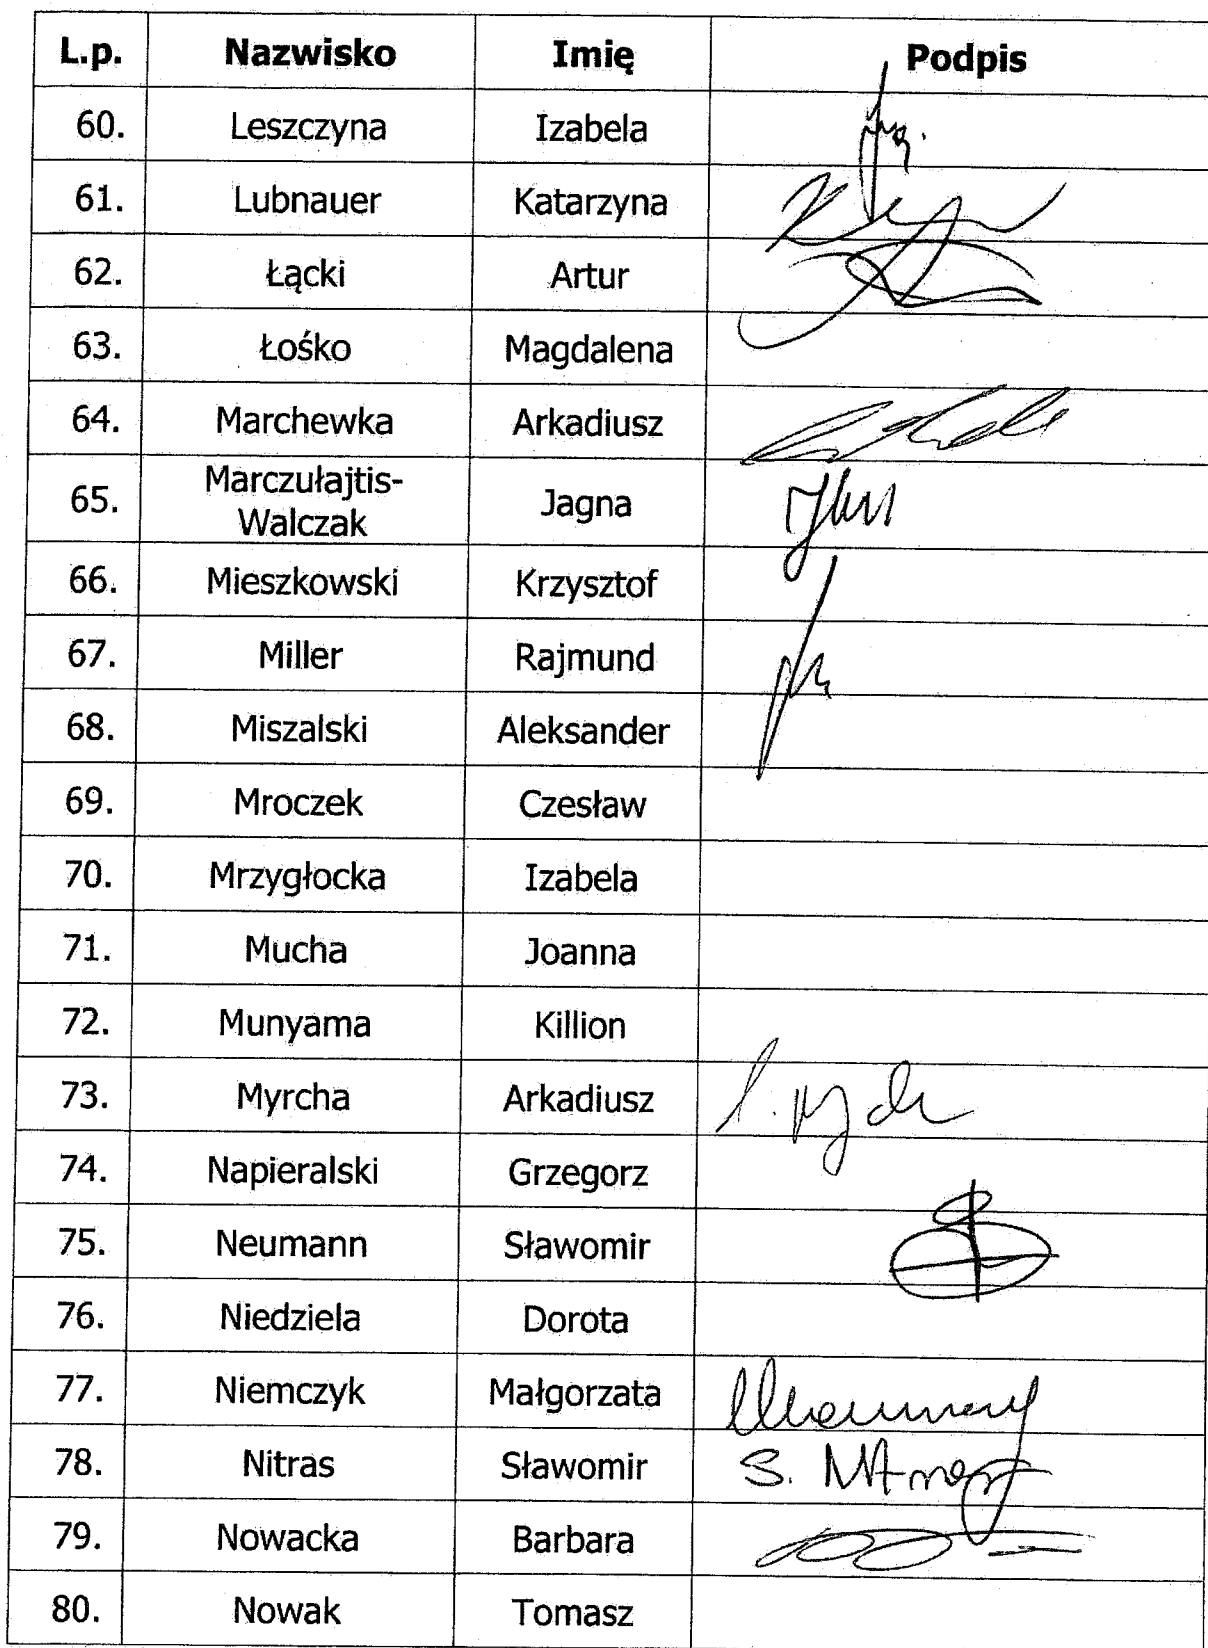 L.p. Nazwisko Imię Podpis
60. Leszczyna Izabela
61. Lubnauer Katarzyna
62. Łącki Artur
63. Łośko Magdalena
64. Marchewka Arkadiusz
65. Marczułajtis-
Walczak Jagna
66. Mieszkowski Krzysztof
67. Miller Rajmund
68. Miszalski Aleksander
69. Mroczek Czesław
70. Mrzygłocka Izabela
71. Mucha Joanna
72. Munyama Killion
73. Myrcha Arkadiusz
74. Napieralski Grzegorz
75. Neumann Sławomir
76. Niedziela Dorota
77. Niemczyk Małgorzata
78. Nitras Sławomir S.
79. Nowacka Barbara
80. Nowak Tomasz